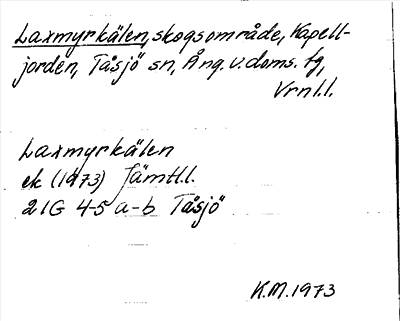 Laxmyrkälen, skogsområde, Kapell-
jorden, Tåsjö sn, Ång. v. doms. fg,
Vrnl.l.
Laxmyrkälen
ek (1973) Jämtl.l.
21G 4-5 a-b Tåsjö
K.M. 1973